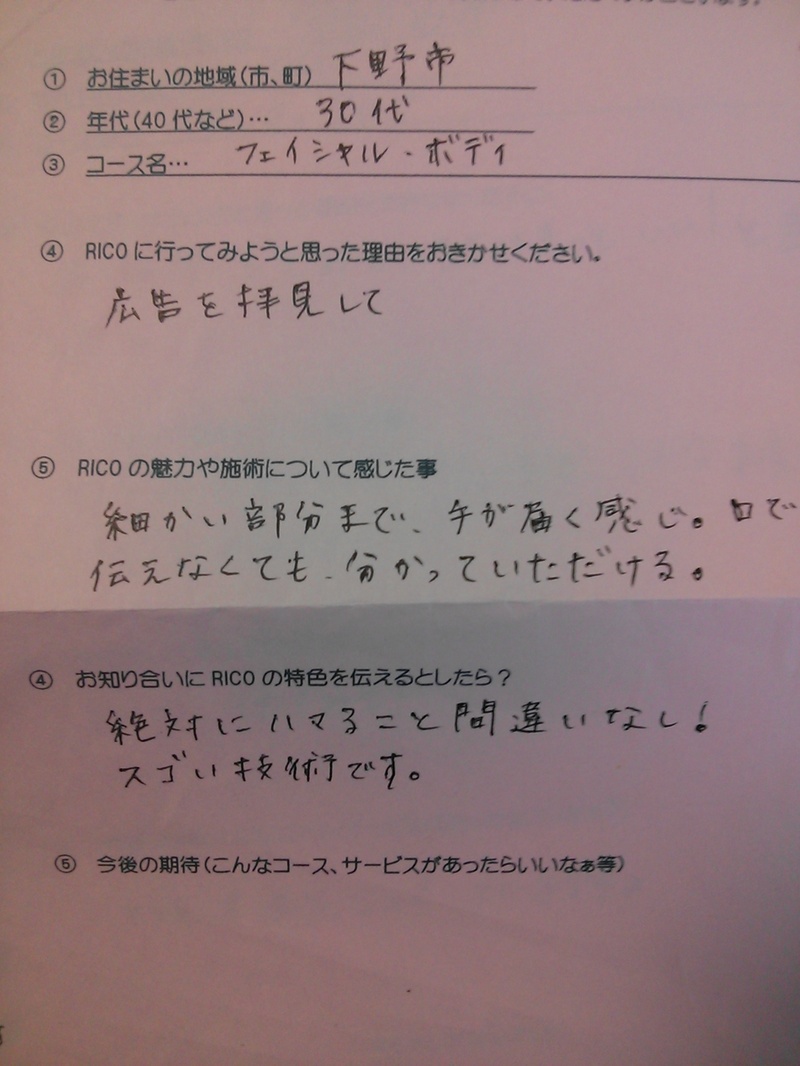 ① お住まいの地域(市、町) 下野市
② 年代(40代など)… 30代
③ コース名… フェイシャル・ボディ
④ RICOに行ってみようと思った理由をおきかせください。
広告を拝見して
⑤ RICOの魅力や施術について感じた事
細かい部分まで、手が届く感じ。口で
伝えなくても、分かっていただける。
④ お知り合いにRICOの特色を伝えるとしたら？
絶対にハマること間違いなし!
スゴい技術です。
⑤ 今後の期待(こんなコース、サービスがあったらいいなぁ等)